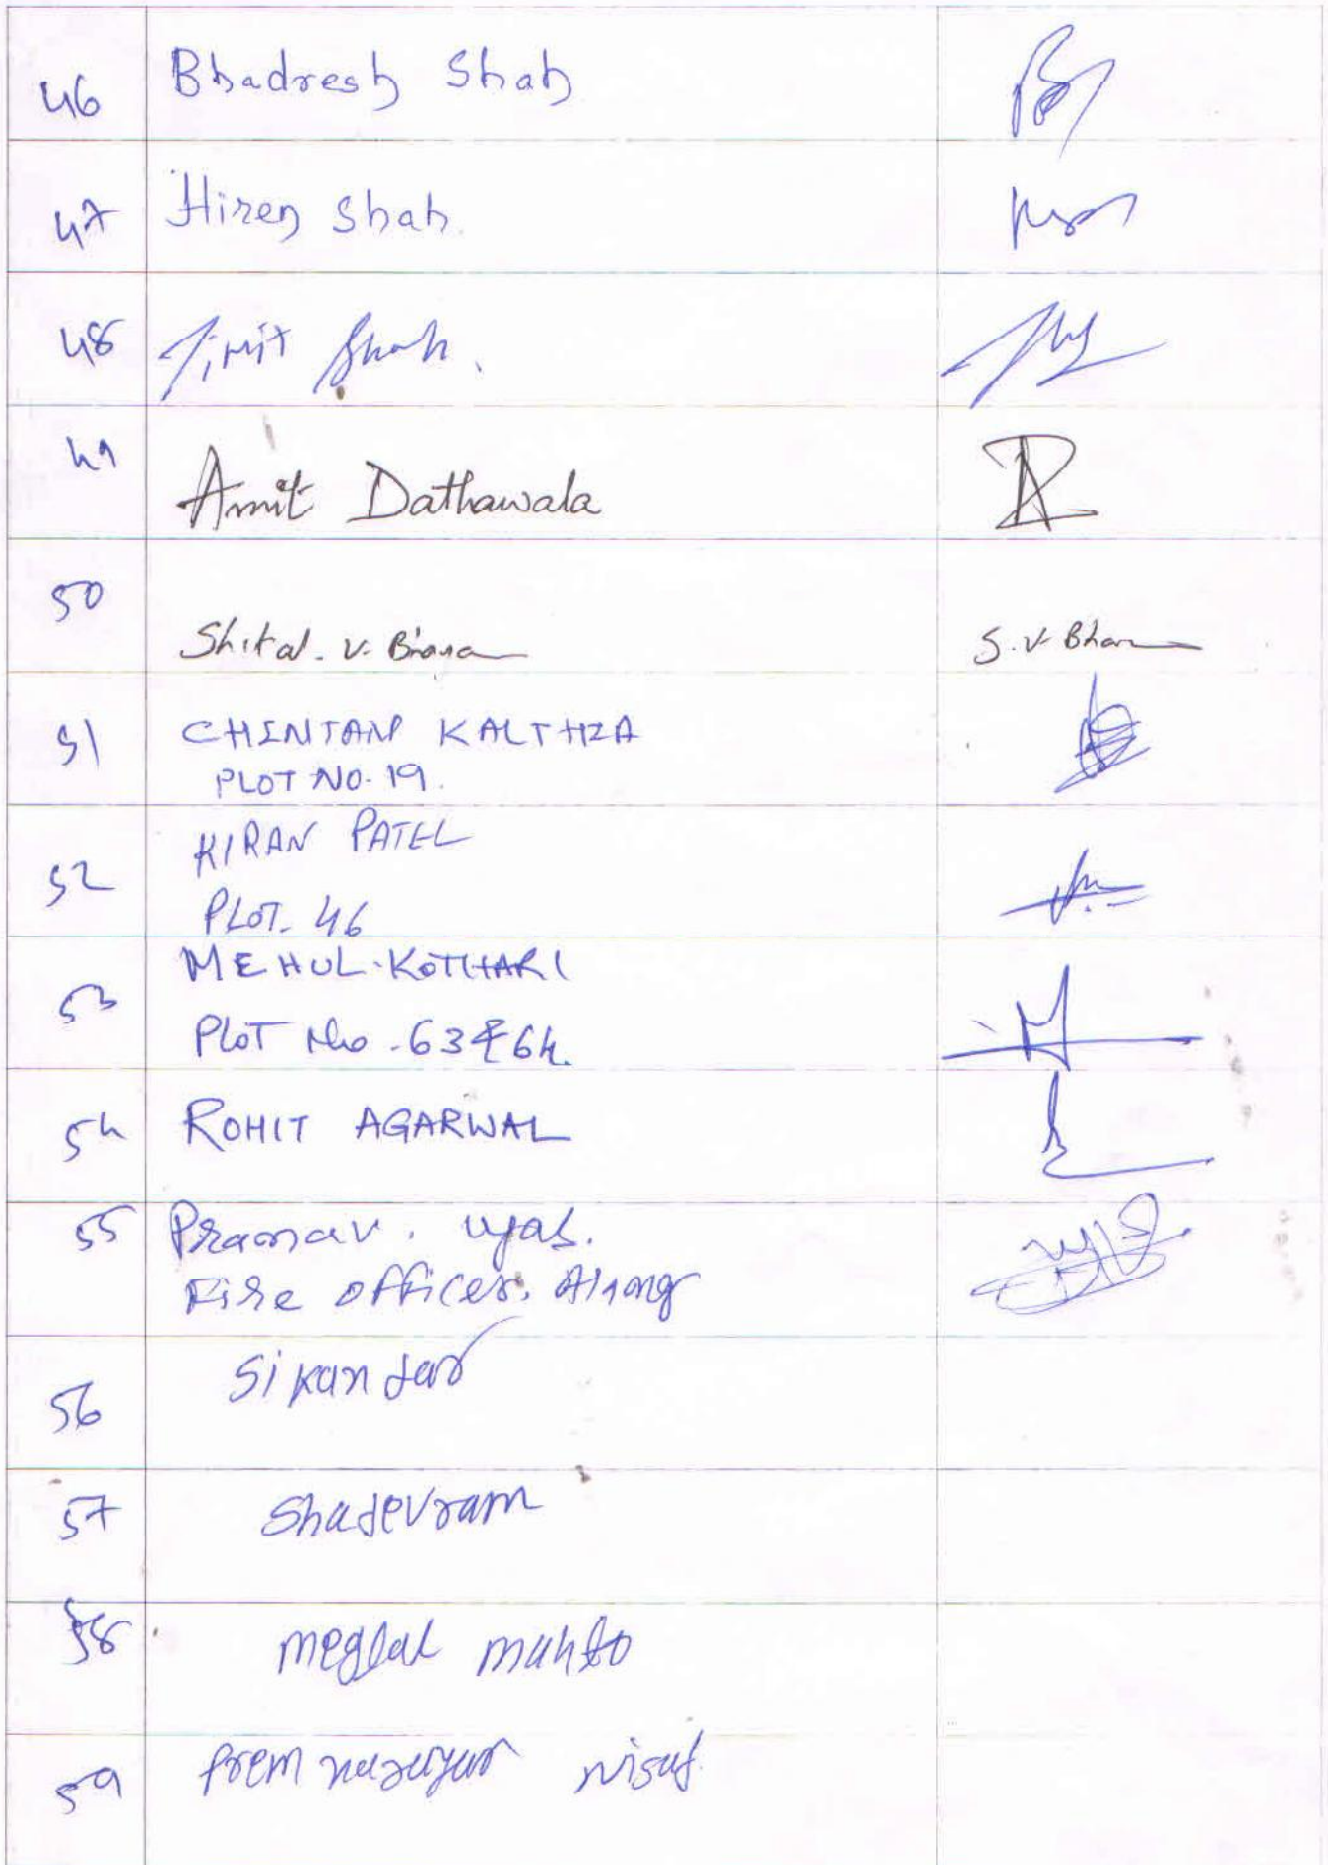 46 Bhadresh Shah
47 Hiren Shah.
48 Jimit Shah.
49 Amit Dathawala
50
Shital. V. S. V. Bhan
51 CHINTAN KALTHIA
PLOT NO. 19.
KIRAN PATEL
52
PLOT. 46
MEHUL.KOTHARI
53
PLOT No. 63 & 64.
54 ROHIT AGARWAL
55 Pranav. Vyas.
Fire officer, Alang
Sikandar
56
57 Shadevram
58 meglal mahto
59 Prem